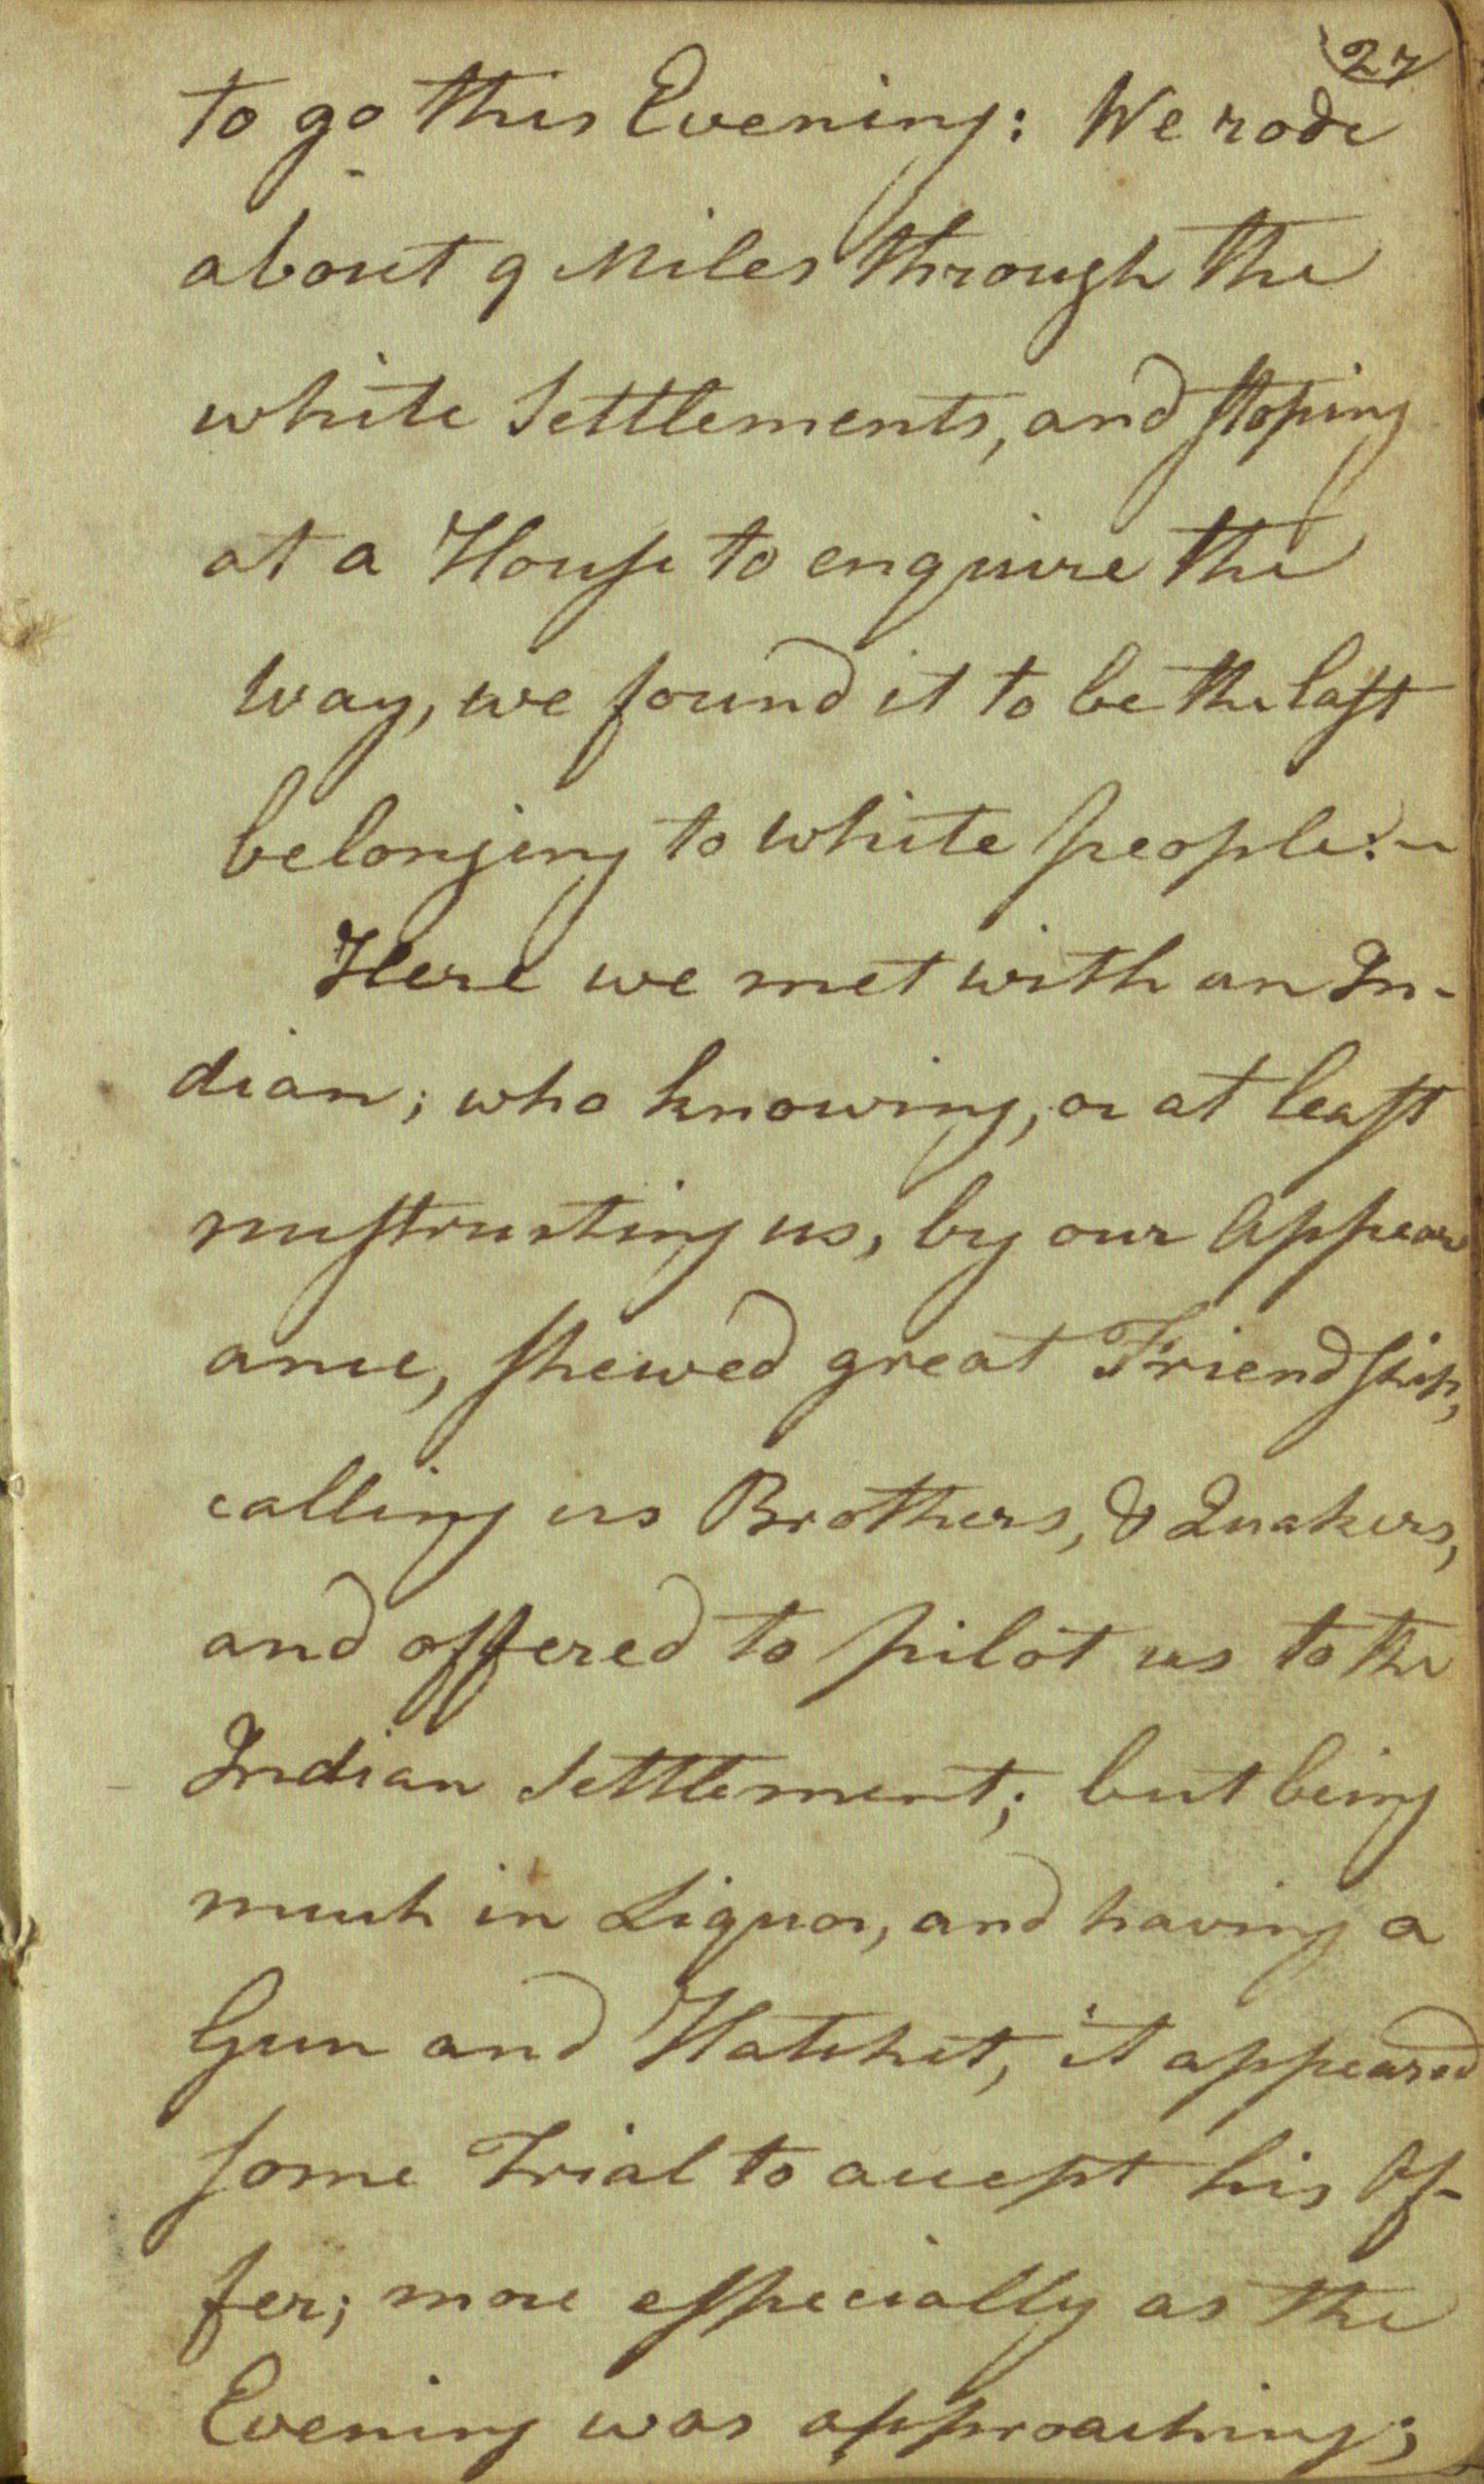 27
to go this Evening: We rode
about 9 Miles through the
white Settlements, and stoping
at a House to enquire the
way, we found it to be the last
belonging to white people:~
Here we met with an In-
dian; who knowing, or at least
mistrusting us, by our Appear
ance, shewed great Friendship,
calling us Brothers, & Quakers,
and offered to pilot us to the
Indian Settlement; but being
much in Liquor, and having a
Gun and Hatchet, it appeared
some Trial to accept his Of-
fer; more especially as the
Evening was approaching;